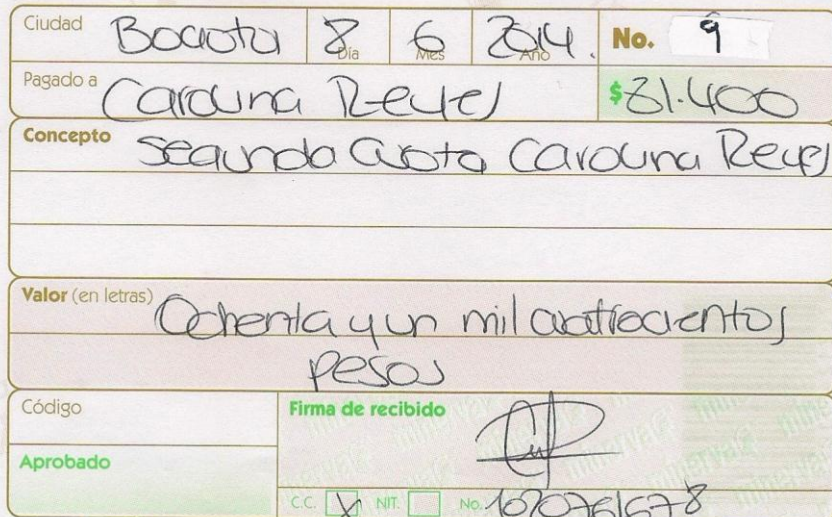 Ciudad Bogota 8 Día 6 Mes 2014. Año No. 9
Pagado a Carolina Reyes $81.400
Concepto Segunda Cuota Carolina Reyes
Valor (en letras) Ochenta y un mil cuatrocientos
pesos
Código Firma de recibido
Aprobado
C.C. X NIT. No. 1020761678